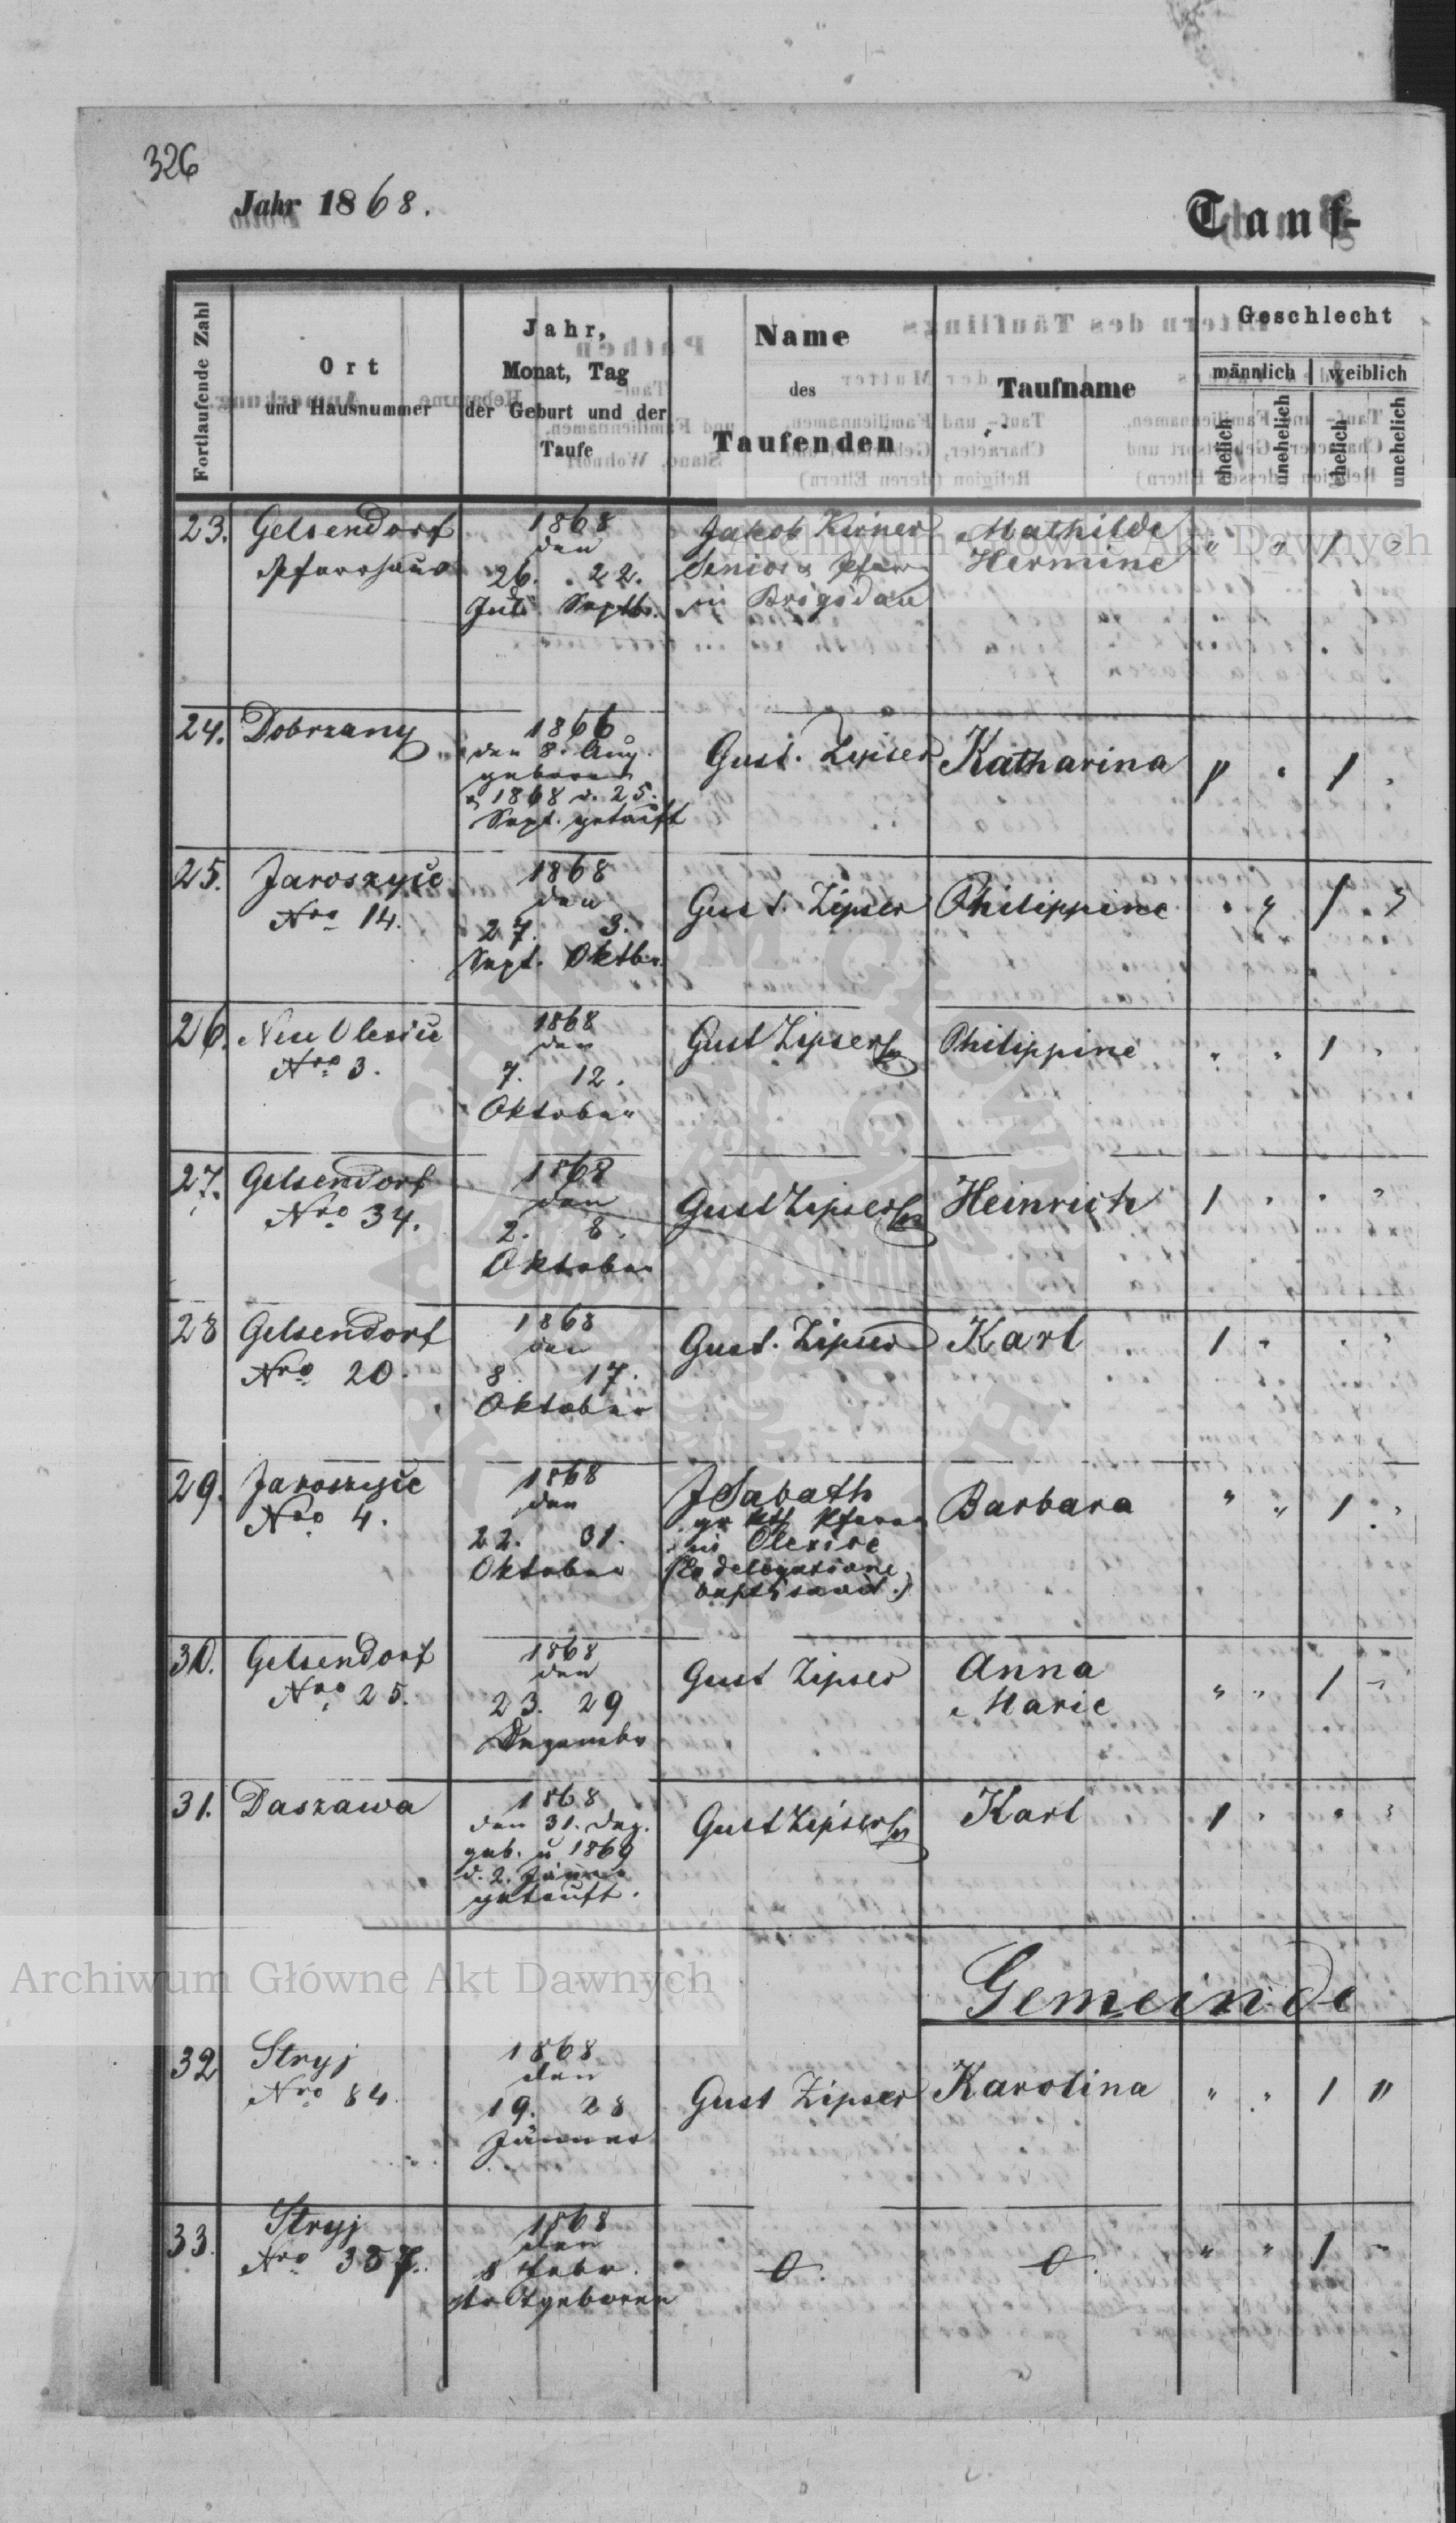 326
Jahr 1868.
Tauf-
Fortlaufende Zahl
Ort
und Hausnummer
Jahr,
Monat, Tag
der Geburt und der
Taufe
Name
des
Taufenden
Taufname
Geschlecht
männlich
weiblich
ehelich
unehelich
ehelich
unehelich
23. Gelsendorf
Pfarrhaus
1868
den
26. 22.
Juli Septb.
Jakob Kirner
Senior & Pfarr
in Brigidau
Mathilde
Hermine
" " 1 "
24. Dobrzany
1866
den 8. Aug.
geboren
1868 d. 25.
Sept. getauft
Gust. Zipser
Katharina
" " 1 "
25. Jaroszyce
Nro 14.
1868
den
27. 3.
Sept. Oktbr.
Gust. Zipser
Philippine
" " 1 "
26. Neu Olexice
Nro 3.
1868
den
7. 12.
Oktober
Gust Zipser
Philippine
" " 1 "
27. Gelsendorf
Nro 34.
1868
den
2. 8.
Oktober
Gust Zipser
Heinrich
1 " " "
28 Gelsendorf
Nro 20.
1868
den
8. 17.
Oktober
Gust. Zipser
Karl
1 " " "
29. Jaroszyce
Nro 4.
1868
den
22. 31.
Oktober
J Sabath
gr kth Pfarrer
in Olexice
(Ex delegatione
baptisavit.)
Barbara
" " 1 "
30. Gelsendorf
Nro 25.
1868
den
23. 29
Dezember
Gust Zipser
Anna
Marie
" " 1 "
31. Daszawa
1868
den 31. Dez.
geb. u 1869
d. 2. Jänner
getauft.
Gust Zipser
Karl
1 " " "
Gemeinde
32 Stryj
Nro 84.
1868
den
19. 28
Jänner
Gust Zipser
Karolina
" " 1 "
33. Stryj
Nro 387.
1868
den
8 Febr.
todtgeboren
0. 0.
" " 1 "
Archiwum Główne Akt Dawnych
Archiwum Główne Akt Dawnych